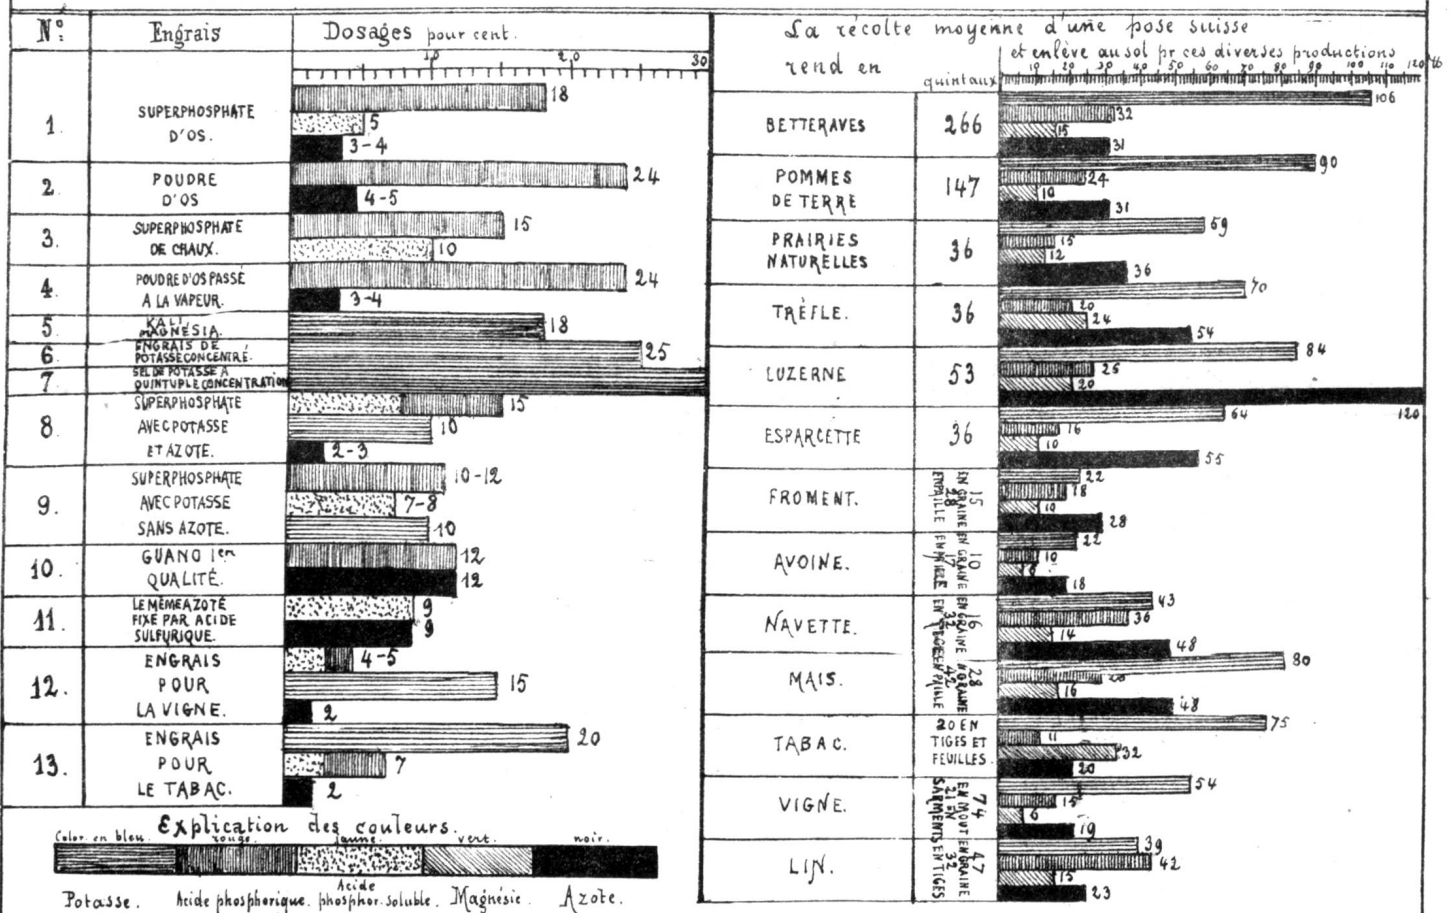 N°:
Engrais
Dosages pour cent.
10
20
30
1.
SUPERPHOSPHATE
D'OS.
18
5
3-4
2.
POUDRE
D'OS
24
4-5
3.
SUPERPHOSPHATE
DE CHAUX.
15
10
4.
POUDRE D'OS PASSÉ
A LA VAPEUR.
24
3-4
5.
KALI
MAGNÉSIA.
18
6
ENGRAIS DE
POTASSE CONCENTRÉ.
25
7
SEL DE POTASSE A
QUINTUPLE CONCENTRATION
8.
SUPERPHOSPHATE
AVEC POTASSE
ET AZOTE.
15
10
2-3
9.
SUPERPHOSPHATE
AVEC POTASSE
SANS AZOTE.
10-12
7-8
10
10.
GUANO 1en
QUALITÉ.
12
12
11.
LE MÊME AZOTÉ
FIXE PAR ACIDE
SULFURIQUE.
9
9
12.
ENGRAIS
POUR
LA VIGNE.
4-5
15
2
13.
ENGRAIS
POUR
LE TABAC.
20
7
2
Explication des couleurs.
Color. en bleu. rouge. jaune. vert. noir.
Potasse. Acide phosphorique. Acide phosphor. soluble. Magnésie. Azote.
La récolte moyenne d'une pose suisse
rend en
quintaux
et enlève au sol pr ces diverses productions
10 20 30 40 50 60 70 80 90 100 110 120 lb
BETTERAVES
266
106
32
15
31
POMMES
DE TERRE
147
90
24
10
31
PRAIRIES
NATURELLES
36
59
15
12
36
TRÈFLE.
36
70
20
24
54
LUZERNE
53
84
26
20
120
ESPARCETTE
36
64
16
10
55
FROMENT.
15
EN GRAINE
28
EN PAILLE
22
18
10
28
AVOINE.
10
EN GRAINE
17
EN PAILLE
22
10
18
NAVETTE.
16
EN GRAINE
32
43
36
14
48
MAIS.
28
42
EN PAILLE
80
16
48
TABAC.
20 EN
TIGES ET
FEUILLES.
75
11
32
20
VIGNE.
74
EN MOUT
21 EN
SARMENTS
54
15
6
19
LIN.
47
EN GRAINE
32
EN TIGES
39
42
15
23